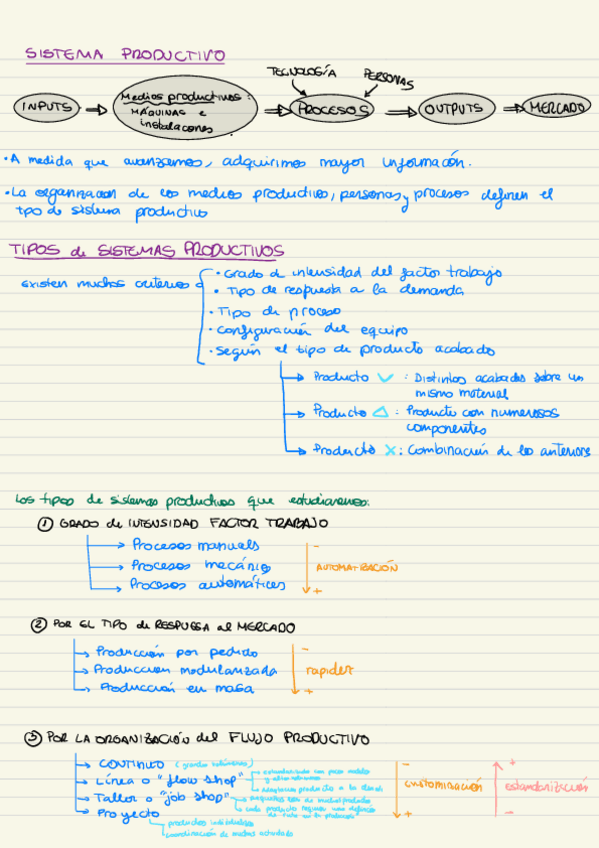 SISTEMA PRODUCTIVO
TECNOLOGÍA
PERSONAS
INPUTS
Medios productivos:
MÁQUINAS e
instalaciones
PROCESOS
OUTPUTS
MERCADO
• A medida que avanzamos, adquirimos mayor información.
• La organización de los medios productivos, personas y procesos definen el
tipo de sistema productivo
TIPOS de SISTEMAS PRODUCTIVOS
existen muchos criterios
• Grado de intensidad del factor trabajo
• Tipo de respuesta a la demanda
• Tipo de proceso
• configuración del equipo
• según el tipo de producto acabado
Producto V : Distintos acabados sobre un
mismo material
Producto △ : Producto con numerosos
componentes
Producto X : Combinación de los anteriores
Los tipos de sistemas productivos que estudiaremos:
① GRADO de INTENSIDAD FACTOR TRABAJO
Procesos manuals
Procesos mecánics
Procesos automátices
-
AUTOMATIZACIÓN
+
② POR EL TIPO de RESPUESA al MERCADO
Producción por pedido
Produccion modularizada
Producción en masa
-
rapidez
+
③ POR LA ORGANIZACIÓN del FLUJO PRODUCTIVO
CONTINUO (grandes volúmenes)
Línea o "flow shop"
estandarizado con pocos modelos
Adaptamos producto a la
Taller o "job shop"
pequeños lotes de muchos productos
cada producto requiere una definición
de ruta en la producción
Proyecto
productos individuales
coordinación de muchas actividades
-
customización
+
+
estandarización
-